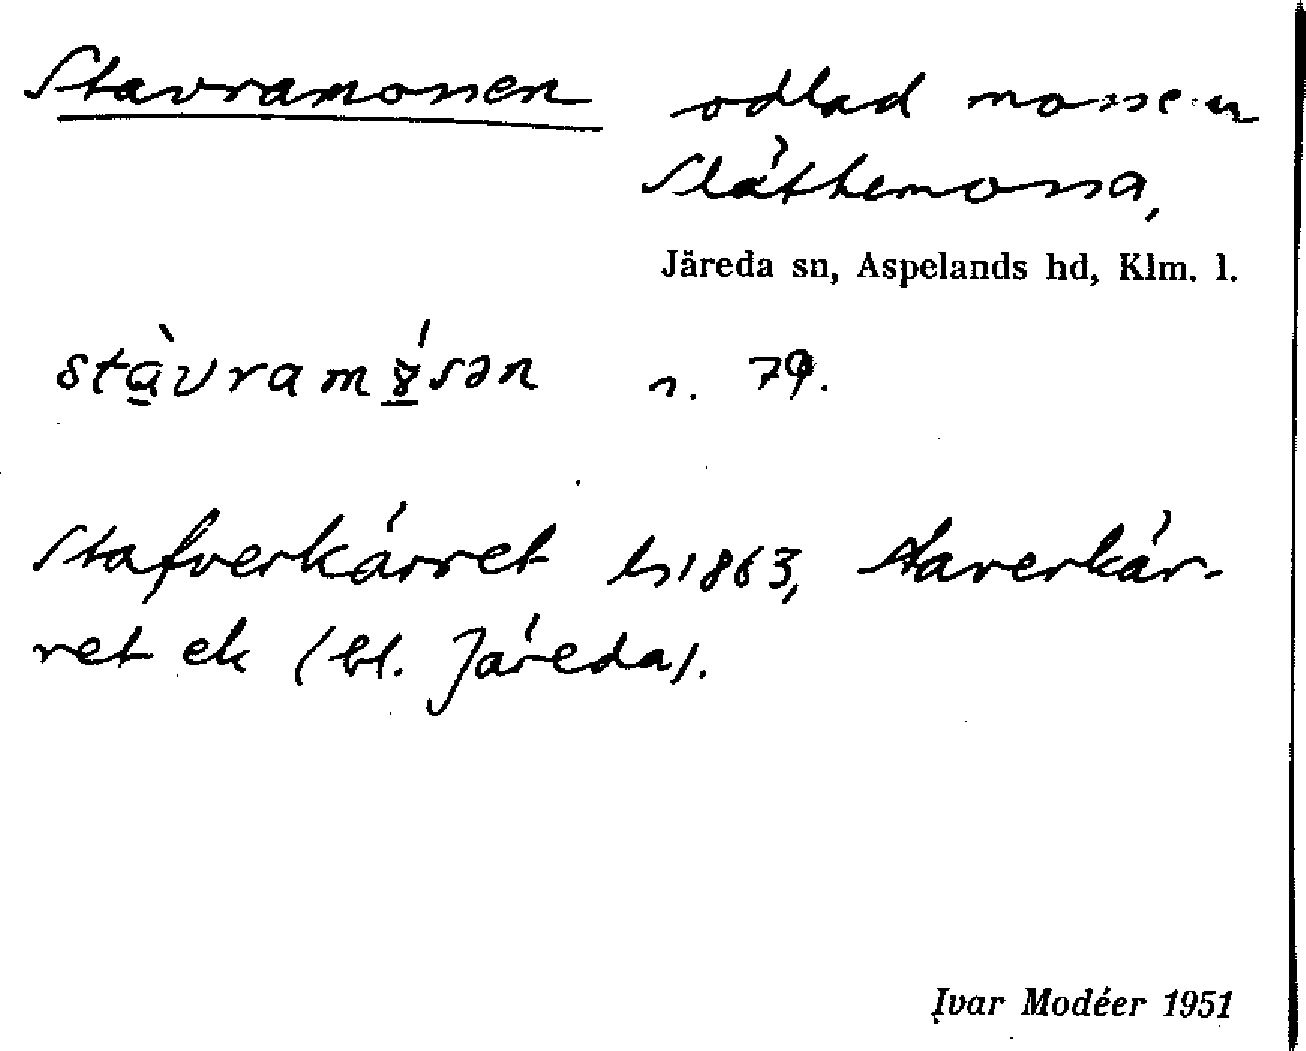 Stavramossen odlad mosse u
Slättemossa,
Järeda sn, Aspelands hd, Klm. l.
stàvramɤ́sən s. 79.
Stafverkärret ls 1863, Staverkär-
ret ek (bl. Järeda).
Ivar Modéer 1951